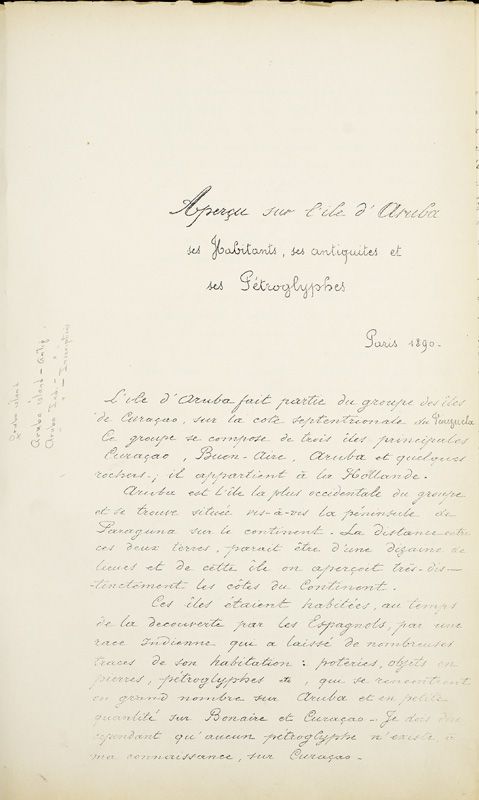 Aperçu sur l'ile d'Aruba
ses Habitants, ses antiquités et
ses Pétroglyphes
Paris 1890.
L'ile d'Aruba fait partie du groupe des îles
de Curaçao, sur la cote septentrionale du
Ce groupe se compose de trois îles principales
Curaçao, Buen-Aire, Aruba et quelques
rochers; il appartient à la Hollande.
Aruba est l'île la plus occidentale du groupe
et se trouve située vis-à-vis la péninsule de
Paraguna sur le continent. La distance entre
ces deux terres, parait être d'une dizaine de
lieues et de cette ile on aperçoit très-dis-
tinctement les côtes du Continent.
Ces îles étaient habitées, au temps
de la decouverte par les Espagnols, par une
race Indienne qui a laissé de nombreuses
traces de son habitation: poteries, objets en
pierres, pétroglyphes, qui se rencontrent
en grand nombre sur Aruba et en petite
quantité sur Bonaire et Curaçao - Je dois dire
cependant qu'aucun pétroglyphe n'existe, à
ma connaissance, sur Curaçao.
Aruba island
Aruba island - Antiq.
Aruba Isld - Inscriptions